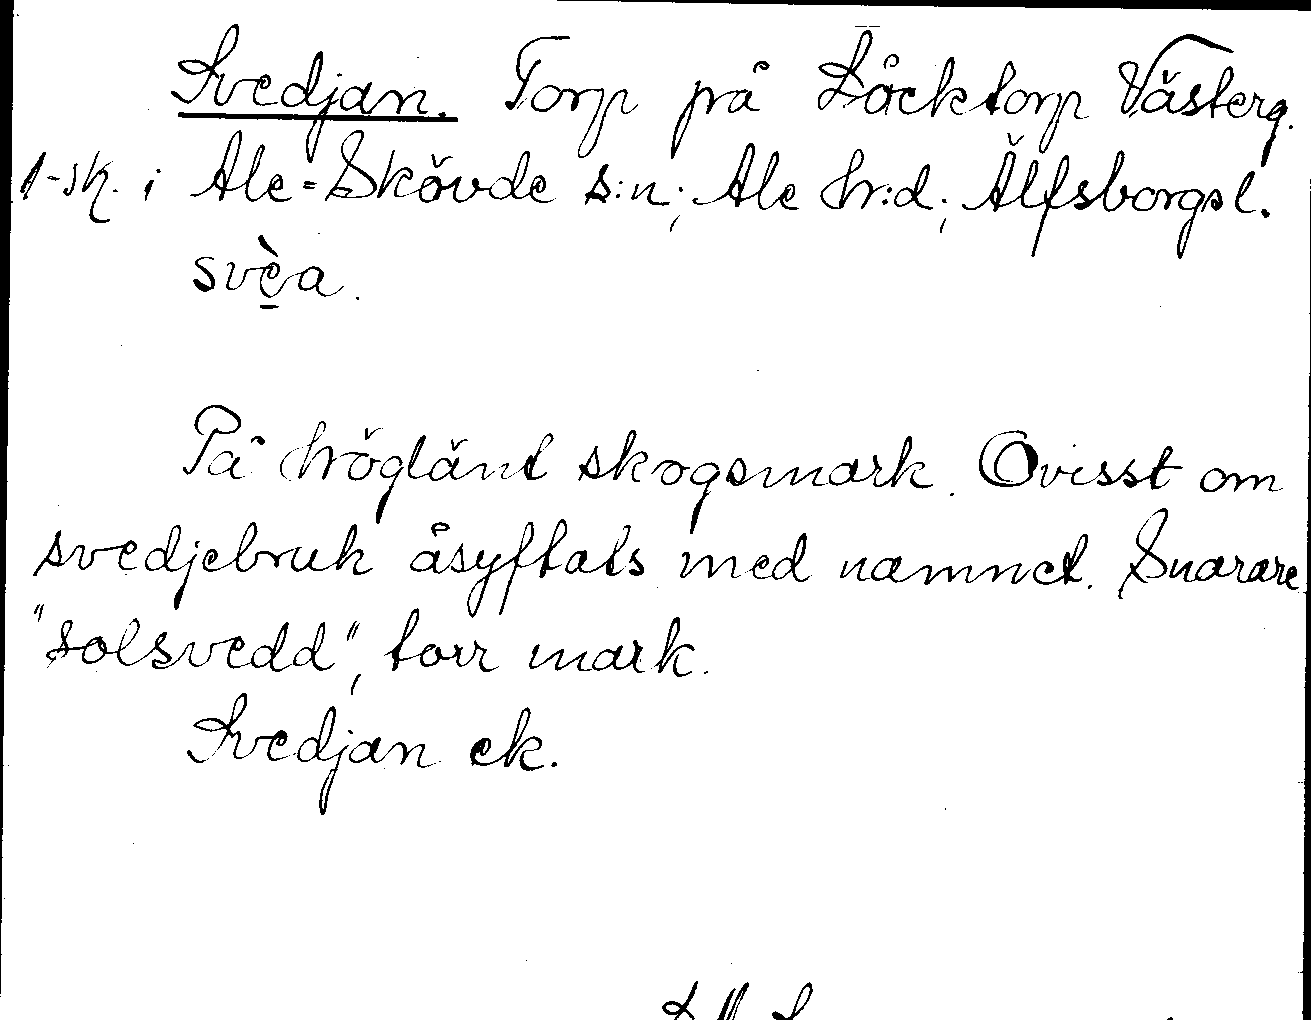 Svedjan. Torp på Låcktorp Västerg.
1-sk. i Ale-Skövde s:n; Ale hr:d; Älfsborgsl.
svèa.
På höglänt skogsmark. Ovisst om
svedjebruk åsyftats med namnet. Snarare
"solsvedd", torr mark.
Svedjan ek.